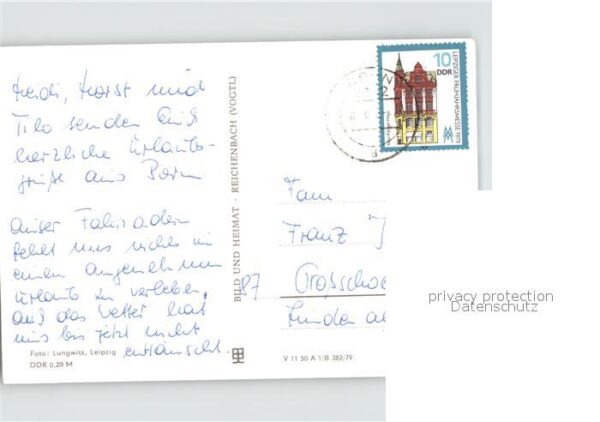 Heidi, Horst und
Tilo senden Euch
herzliche Urlaubs-
grüße aus Born
Außer Fahrrädern
fehlt uns nichts um
einen angenehmen
Urlaub zu verleben,
auch das Wetter hat
uns bis jetzt nicht
enttäuscht.
Foto: Lungwitz, Leipzig
DDR 0,20 M
BILD UND HEIMAT · REICHENBACH (VOGTL)
V 11 50 A 1/B 382/79
10
DDR
LEIPZIGER FRÜHJAHRSMESSE 1979
MM
Fam
Franz
87
Großscho
Linden
privacy protection
Datenschutz